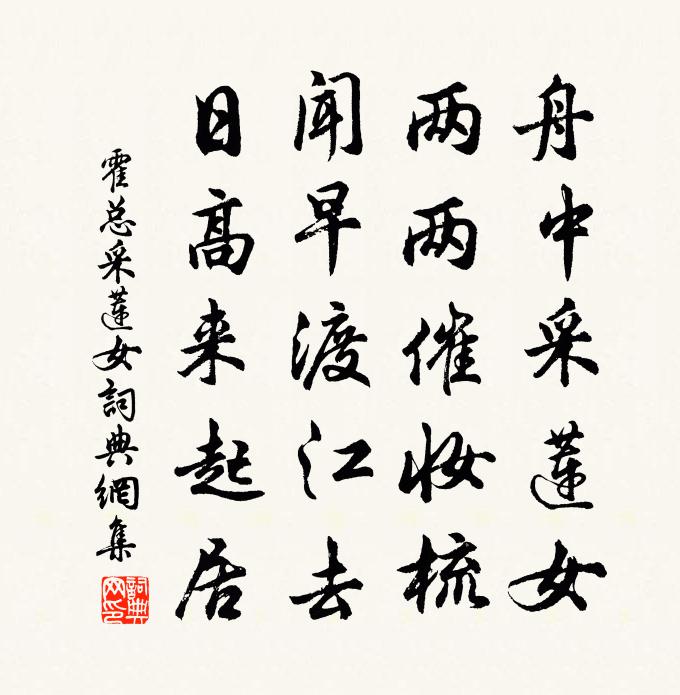 舟中采蓮女
两两催妆梳
闻早渡江去
日高来起居
霍总采蓮女詞典網集
詞典网印